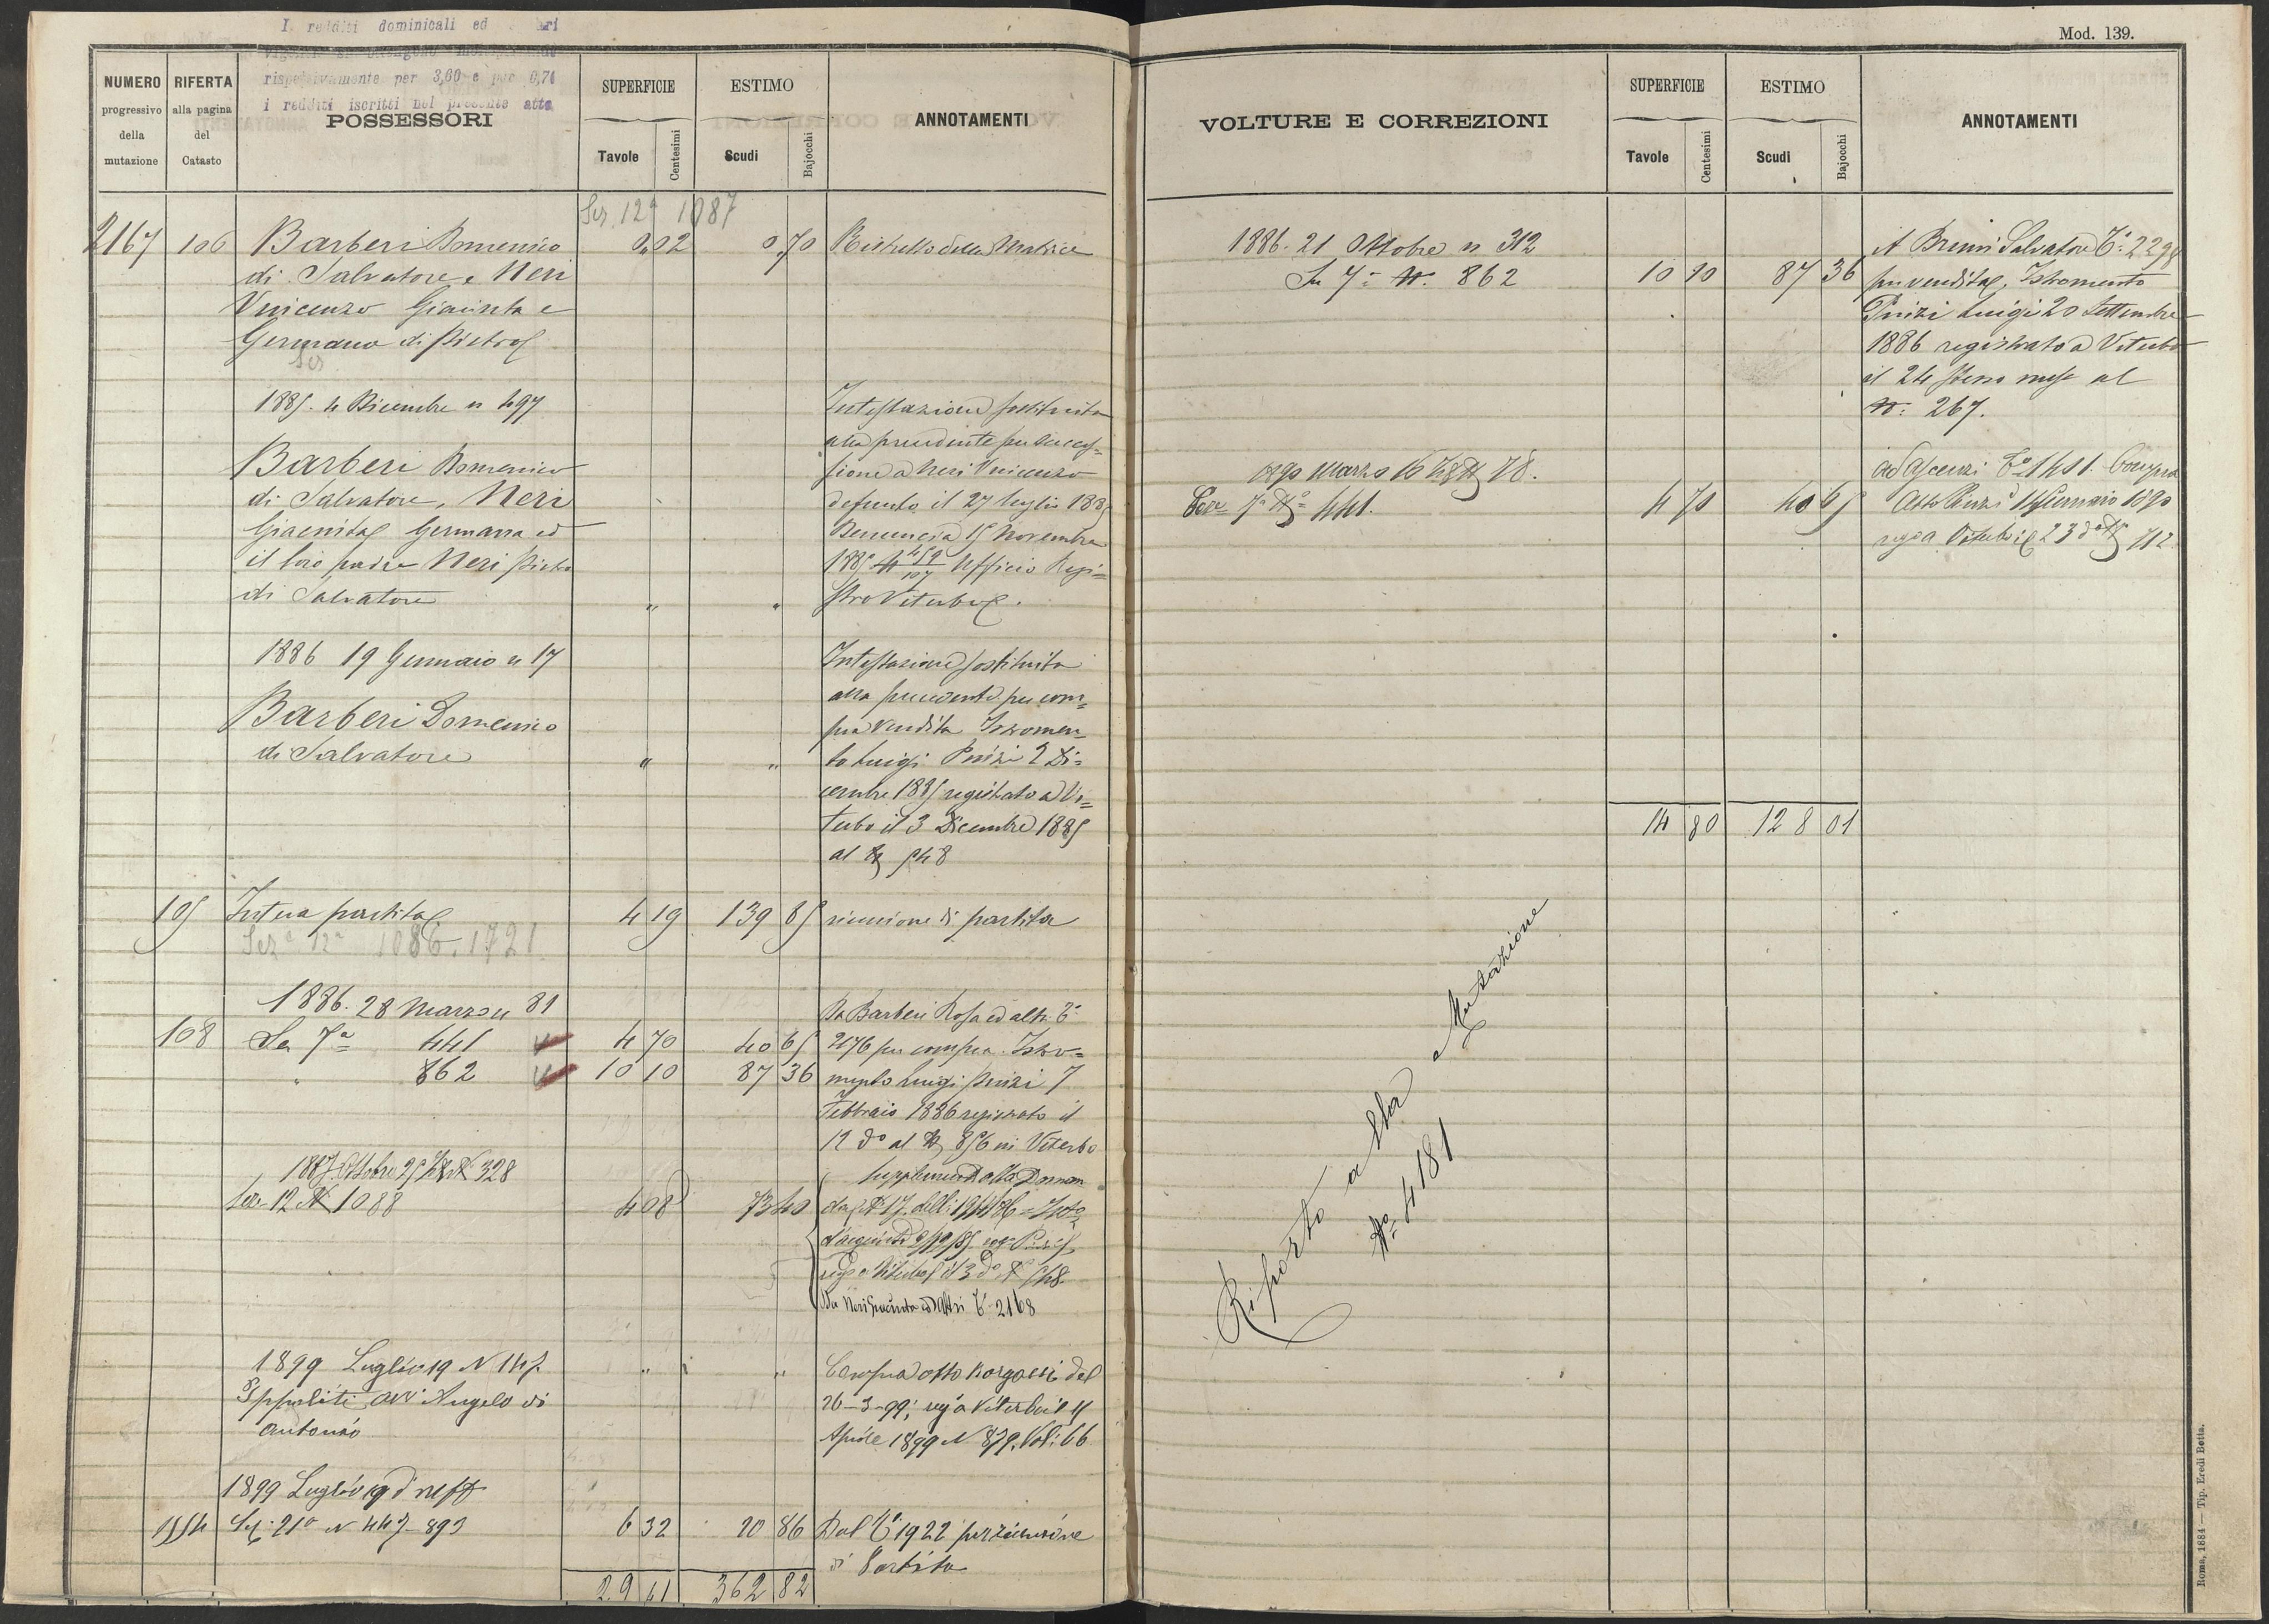 I redditi dominicali ed
rispettivamente per 3,60 e per 0,71
i redditi iscritti nel presente atto
NUMERO progressivo della mutazione
RIFERTA alla pagina del Catasto
POSSESSORI
SUPERFICIE
Tavole Centesimi
ESTIMO
Scudi Bajocchi
ANNOTAMENTI
Sez. 12ª 1087
2167 106 Barberi Domenico 0,02 0,70 Ristretto della Matrice
di Salvatore e Neri
Vincenzo Giacinta e
Germano di Pietro
Sez
1885. 4 Dicembre n 497 Intestazione sostituita
alla precedente per succes=
Barberi Domenico sione a Neri Vincenzo
di Salvatore, Neri defunto il 27 luglio 1885
Giacinta Germana ed Denuncia 15 Novembre
il loro padre Neri Pietro 1885 N 459/107 Ufficio Regi=
di Salvatore " " stro Viterbo.
1886 19 Gennaio n 17 Intestazione sostituita
alla precedente per com=
Barberi Domenico pra vendita Istromen=
di Salvatore " " to Luigi Pinzi 2 Di=
cembre 1885 registrato a Vi=
terbo il 3 Dicembre 1885
al N 548
105 Intera partita 4 19 139 85 riunione di partita
Seza 12ª 1086. 1721
1886. 28 Marzo n 81 Da Barberi Rosa ed altri Tº
108 Sn 7ª 441 4 70 40 65 2176 per compra. Istro=
" 862 10 10 87 36 mento Luigi Pinzi 7
Febbraio 1886 registrato il
12 dº al N 856 in Viterbo
1887 Ottobre 25 N 328
Sez. 12 N 1088 4 08 73 40
Viterbo il 3 dº Nº 548
Da Neri Giacinta ed Altri Tº 2168
1899 Luglio 19 N 147 " " Compra atto Borgassi del
Ippoliti avv. Angelo di 26-3-99; reg a Viterbo il 11
Antonio Aprile 1899 N 879. Vol: 66
1899 Luglio 19 d
1554 Sez. 21ª N 447-893 6 32 20 86 Dal Tº 1922 per riunione
di Partita
29 61 362 82
Mod. 139.
VOLTURE E CORREZIONI
SUPERFICIE
Tavole Centesimi
ESTIMO
Scudi Bajocchi
ANNOTAMENTI
1886. 21 Ottobre n 312 A Brenni Salvatore Tº 2298
Sn 7ª N. 862 10 10 87 36 per vendita, Istromento
Pinzi Luigi 20 Settembre
1886 registrato a Viterbo
il 24 stesso mese al
N. 267.
1890 Marzo 16 N 78. ad Ascenzi Tº 1401. Compra
Sez. 7ª Nº 441. 4 70 40 65 Atto Pinzi 14 Gennaio 1890
reg a Viterbo il 23 dº N 712
14 80 128 01
Riporto alla Mutazione
Nº 4181
Roma, 1884 — Tip. Eredi Botta.